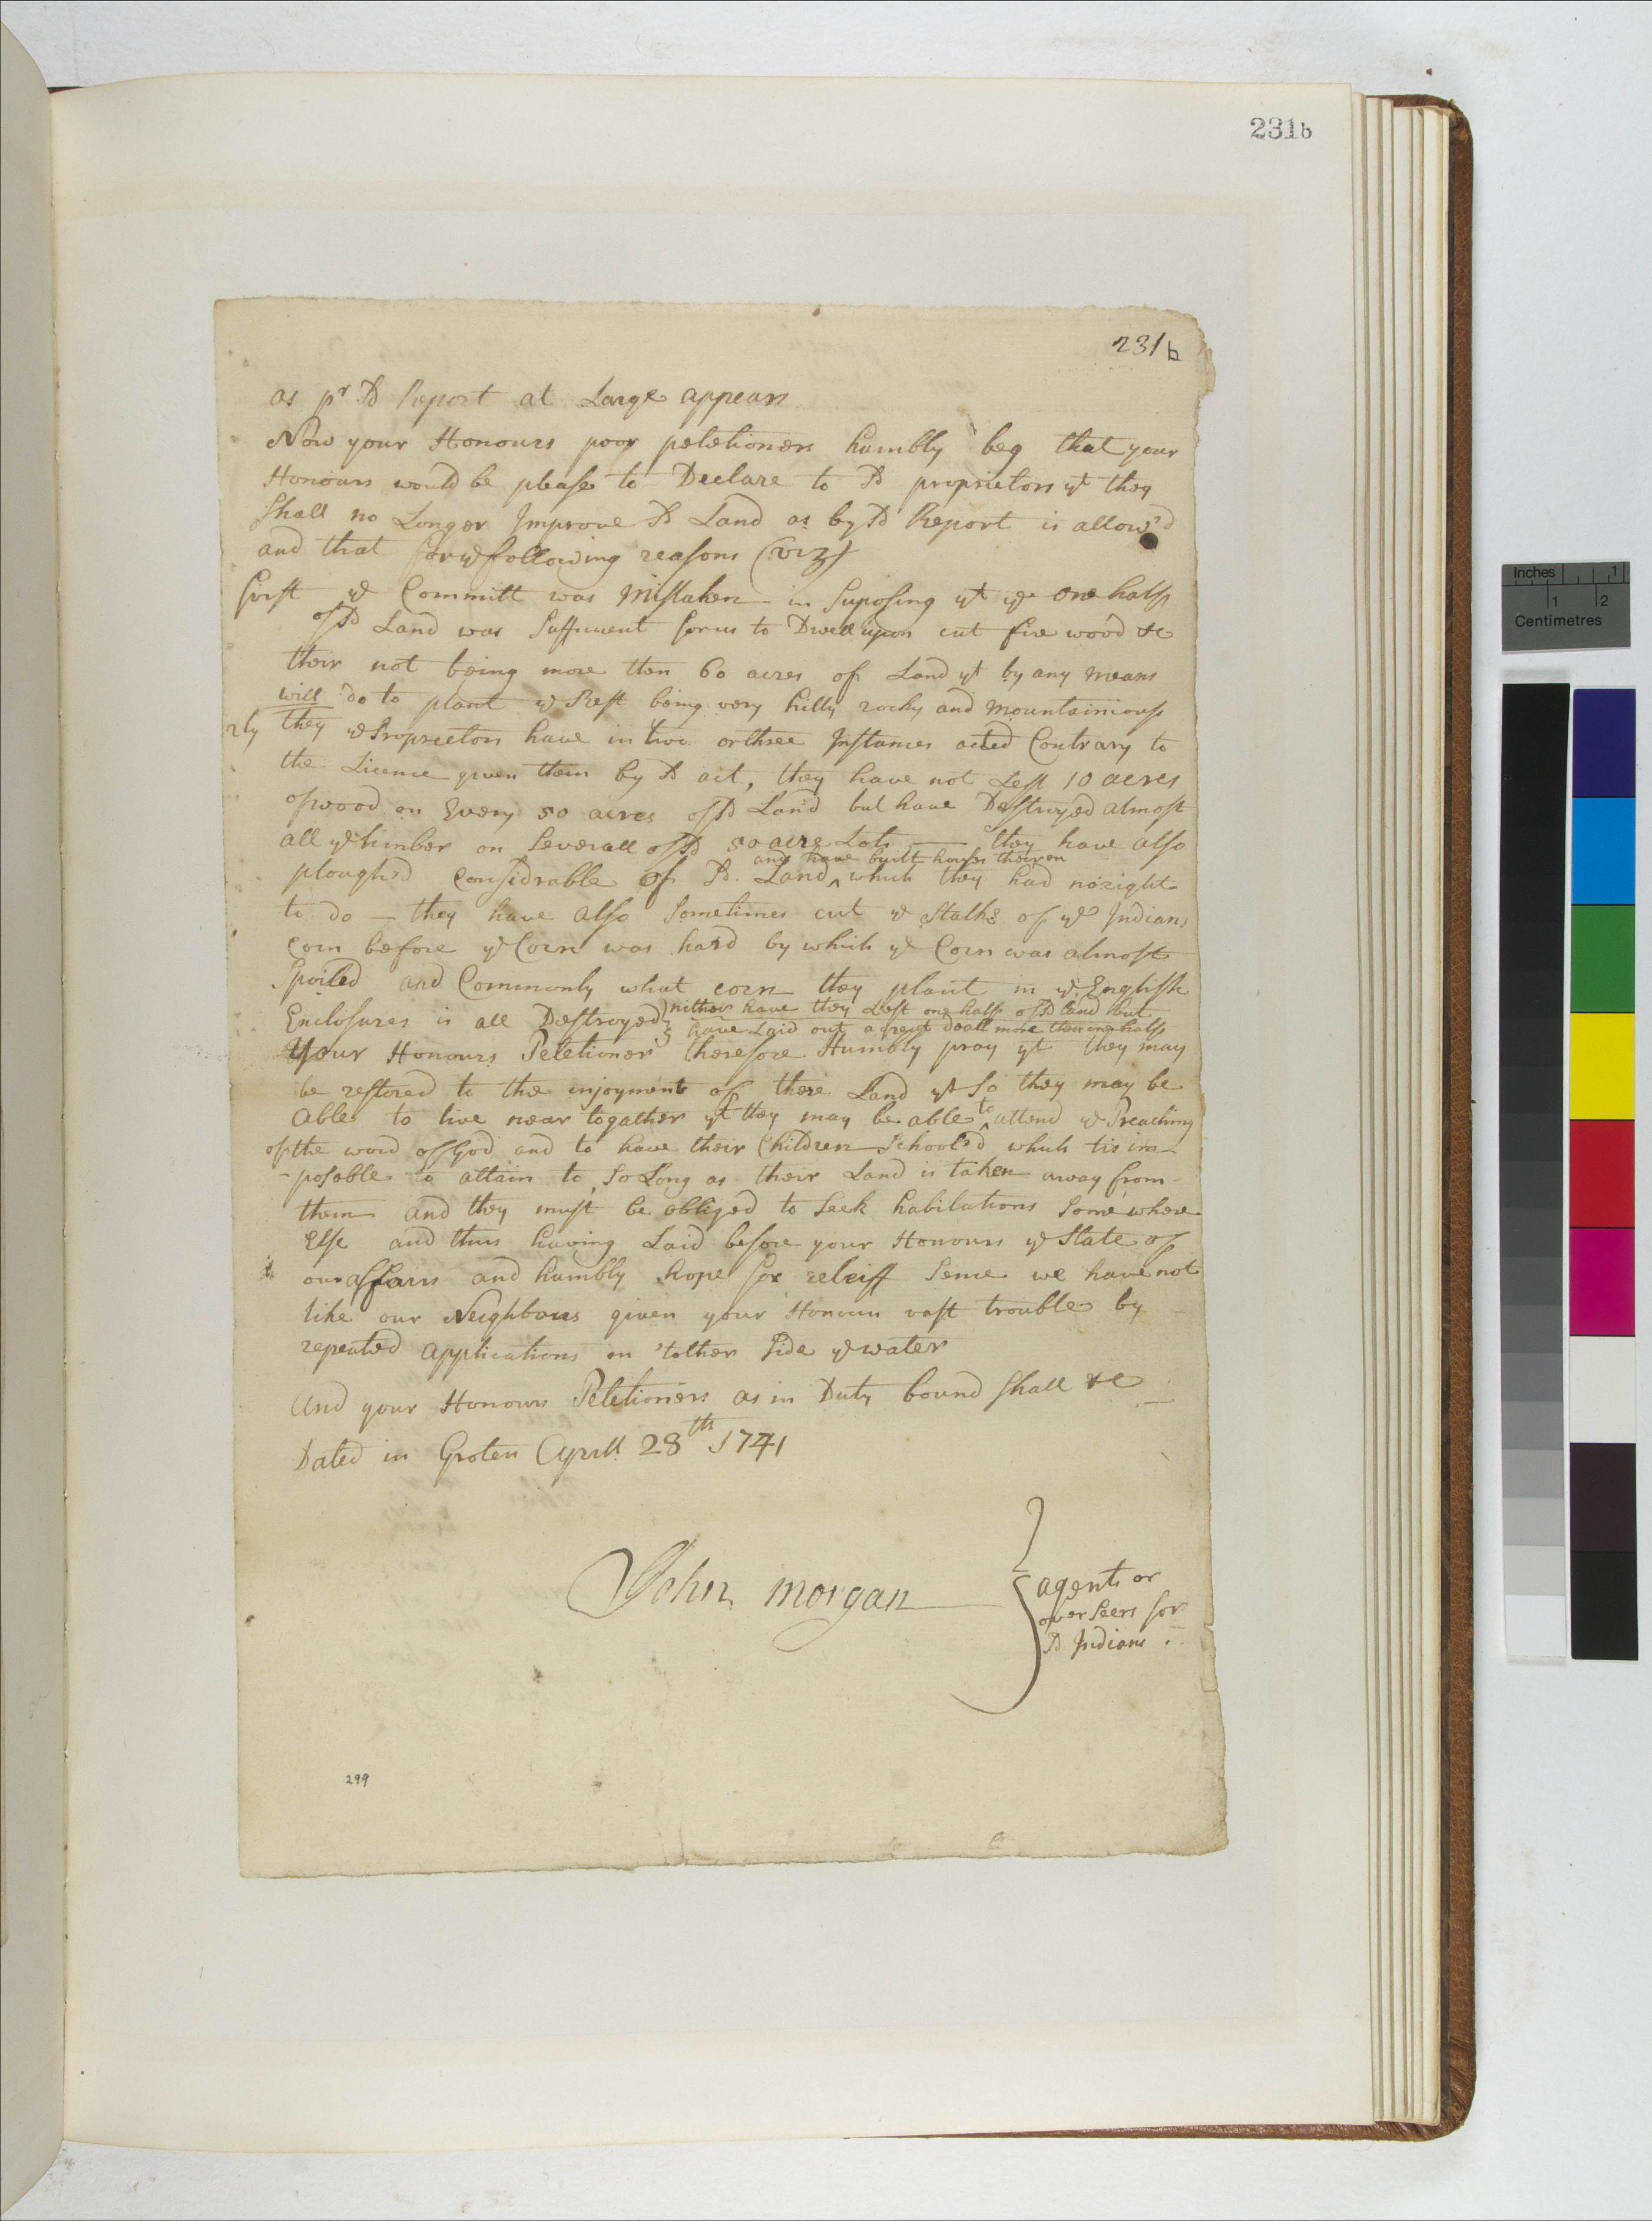 231b
231b
as pr sd Report at Large appears
Now your Honours poor petetioners humbly beg that your
Honours would be please to Declare to sd proprietors yt they
Shall no Longer Improve sd Land as by sd Report is allow'd
and that for ye following reasons (viz)
first ye Committ was Mistaken in Suposing yt ye one half
of sd Land was Suffucient for us to Dwell upon cut fire wood &c
their not being more then 60 acres of Land yt by any means
will do to plant ye Rest being very hilly rocky and mountainious
2ly they ye Proprietors have in two or three Instances acted Contrary to
the Licence given them by sd act, they have not Left 10 acres
of wood on Every 50 acres of sd Land but have Destroyed almost
all ye timber on Severall of sd 50 acre Lots — they have also
and have built houses theiron
ploughed Considrable of sd Land ^ which they had no right
to do — they have also Sometimes cut ye Stalks of ye Indians
Corn before ye Corn was hard by which ye Corn was almost
Spoiled and Commonly what corn they plant in ye English
Enclosures is all Destroyed } nither have they Left one half of sd land but
have Laid out a great deall more then one half
Your Honours Petetioners therefore Humbly pray yt they may
be restored to the injoyment of there Land yt So they may be
Able to live near togather yt they may be able ^to attend ye Preaching
of the word of God and to have their Children Schooled which tis im-
-posoble to attain to, So Long as their Land is taken away from
them and they must be obliged to Seek habitations Some where
Else and thus having Laid before your Honours ye State of
our affairs and humbly hope for releiff Sence we have not
like our Neighbours given your Honours vast trouble by
repeated applications on 'tother Side ye water
And your Honours Petetioners as in Duty bound Shall &c
Dated in Groten Aprill 28th 1741
John morgan
agents or
over Seers for
sd Indians
299
Inches 1
1 2
Centimetres